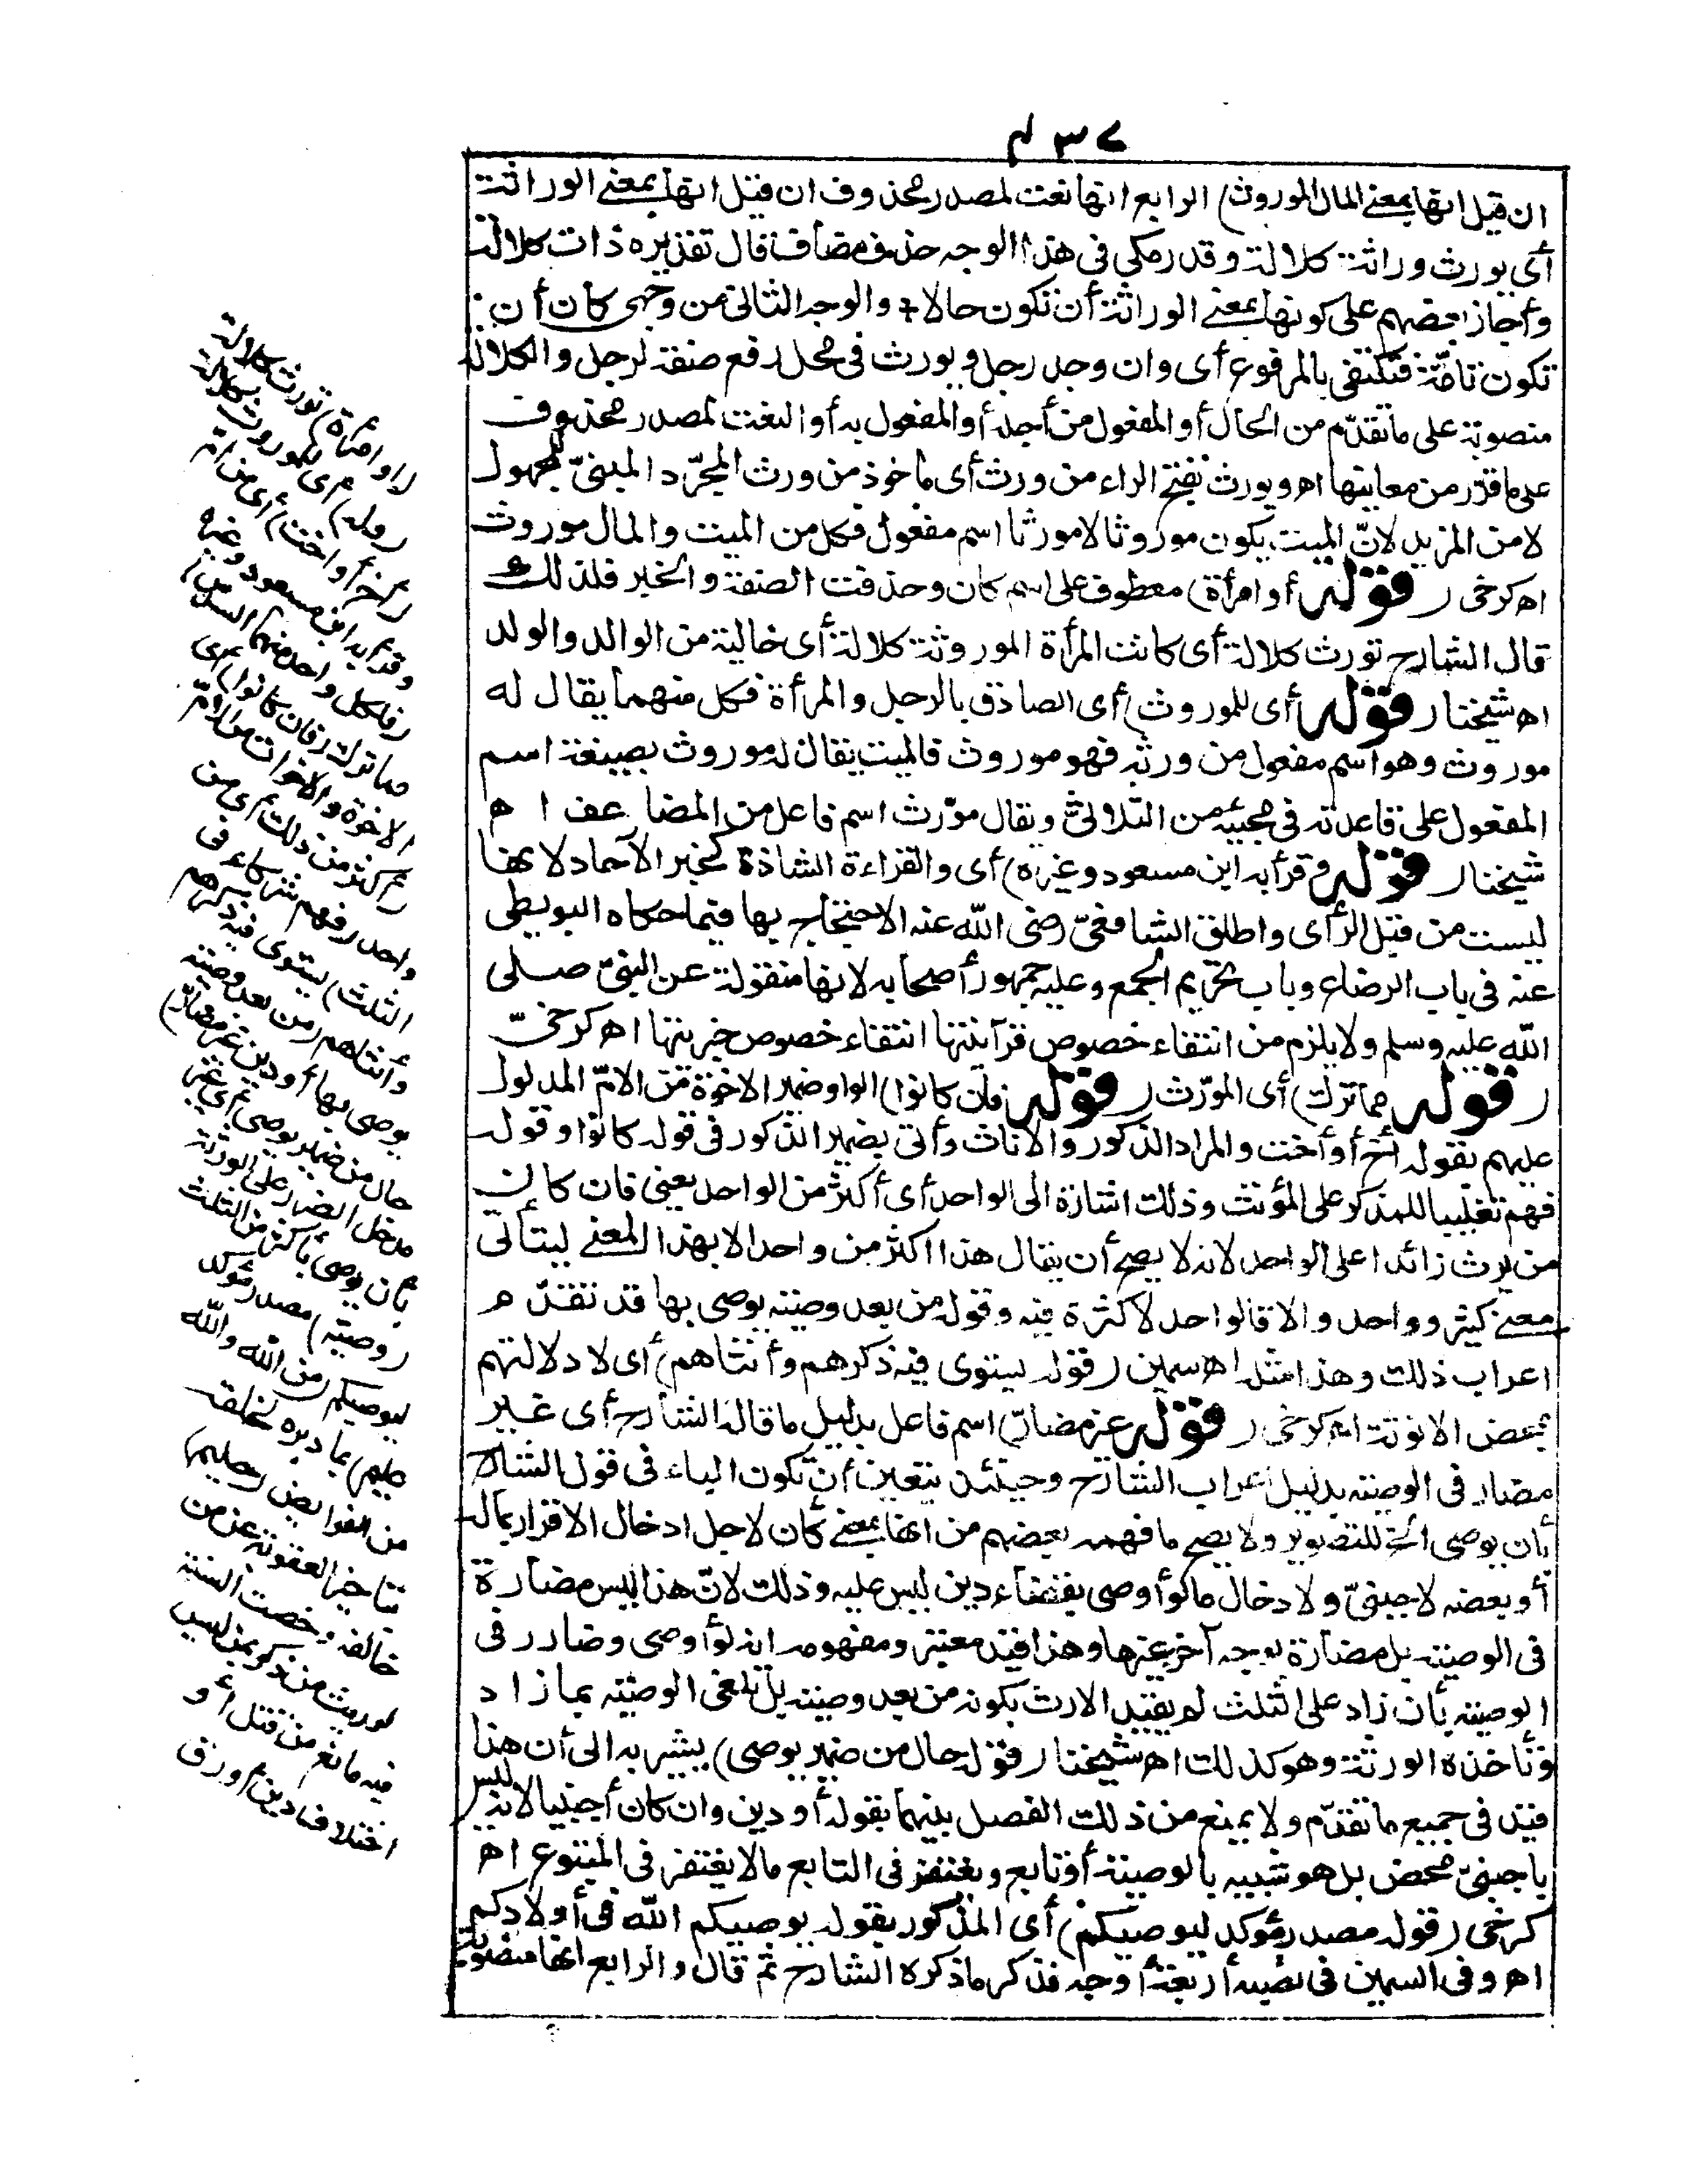 ٤٣٧
ان قيل انها بمعنى المال الموروث) الرابع انها نعت لمصدر محذوف ان قيل انها بمعنى الوراثة
أى يورث وراثة كلالة وقدر مكى فى هذا الوجه حذف مضاف قال تقديره ذات كلالة
وأجاز بعضهم على كونها بمعنى الوراثة أن تكون حالا والوجه الثانى من وجهى كان أن
تكون تامّة فتكتفى بالمرفوع أى وان وجد رجل و يورث فى محل رفع صفة لرجل والكلالة
منصوبة على ماتقدّم من الحال أو المفعول من أجله أو المفعول به أو النعت لمصدر محذوف
على ما قرّر من معانيها اه ويورث بفتح الراء من ورث أى مأخوذ من ورث المجرّد المبنىّ للمجهول
لا من المزيد لانّ الميت يكون موروثا لا مورثا اسم مفعول فكل من الميت والمال موروث
اه كرخى (قوله أو امرأة) معطوف على اسم كان وحذفت الصفة والخبر فلذلك
قال الشارح تورث كلالة أى كانت المرأة الموروثة كلالة أى خالية من الوالد والولد
اه شيخنا (قوله أى للموروث) أى الصادق بالرجل والمرأة فكل منهما يقال له
موروث وهو اسم مفعول من ورثه فهو موروث فالميت يقال له موروث بصيغة اسم
المفعول على قاعدته فى مجيئه من الثلاثىّ ويقال مورّث اسم فاعل من المضاعف اه
شيخنا (قوله وقرأ به ابن مسعود وغيره) أى والقراءة الشاذة كخبر الآحاد لانها
ليست من قبل الرأى واطلق الشافعىّ رضى الله عنه الاحتجاج بها فيما حكاه البويطى
عنه فى باب الرضاع وباب تحريم الجمع وعليه جمهور أصحابه لانها منقولة عن النبىّ صلى
الله عليه وسلم ولا يلزم من انتفاء خصوص قرآنيتها انتفاء خصوص خبريتها اه كرخىّ
(قوله مما ترك) أى المورّث (قوله فان كانوا) الواو ضمير الاخوة من الامّ المدلول
عليهم بقوله أخ أو أخت والمراد الذكور والاناث وأتى بضمير الذكور فى قوله كانوا وقوله
فهم تغليبا للمذكر على المؤنث وذلك اشارة الى الواحد أى أكثر من الواحد يعنى فان كان
من يرث زائدا على الواحد لانه لا يصح أن يقال هذا اكثر من واحد الا بهذا المعنى لتنافى
معنى كثير وواحد والا فالواحد لا كثرة فيه وقوله من بعد وصية يوصى بها قد تقدّم
اعراب ذلك وهذا مثله اه سمين (قوله يستوى فيه ذكرهم وأنثاهم) أى لادلائهم
بمحض الانوثة اه كرخى (قوله غير مضارّ) اسم فاعل بدليل ما قاله الشارح أى غير
مضار فى الوصية بدليل اعراب الشارح وحينئذ يتعين أن تكون الباء فى قول الشارح
بأن يوصى الخ للتصوير ولا يصح ما فهمه بعضهم من انها بمعنى كأن لاجل ادخال الاقرار بماله
أو بعضه لاجنبىّ ولادخال ما لو أوصى بقضاء دين ليس عليه وذلك لانّ هذا ليس مضارة
فى الوصية بل مضارة بوجه آخر غيرها وهذا قيد معتبر ومفهومه انه لو أوصى وضارر فى
الوصية بأن زاد على الثلث لم يقيد الارث بكونه من بعد وصية بل تلغى الوصية بما زاد
وتأخذه الورثة وهو كذلك اه شيخنا (قوله حال من ضمير يوصى) يشير به الى أن هذا
قيد فى جميع ما تقدّم ولا يمنع من ذلك الفصل بينهما بقوله أو دين وان كان أجنبيا لانه ليس
باجنبىّ محض بل هو شبيه بالوصية أو تابع ويغتفر فى التابع ما لا يغتفر فى المتبوع اه
كرخى (قوله مصدر مؤكد ليوصيكم) أى المذكور بقوله يوصيكم الله فى أولادكم
اه وفى السمين فى نصبه أربعة أوجه فذكر ما ذكره الشارح ثم قال والرابع انها منصوبة
(أو امرأة) تورث كلالة
(وله) أى للموروث كلالة
(أخ أو أخت) أى من أم
وقرأ به ابن مسعود وغيره
(فلكل واحد منهما السدس)
مما ترك (فان كانوا) أى
الاخوة والاخوات من الامّ
(أكثر من ذلك) أى من
واحد (فهم شركاء فى
الثلث) يستوى فيه ذكرهم
وأنثاهم (من بعد وصية
يوصى بها أو دين غير مضارّ)
حال من ضمير يوصى أى غير
مدخل الضرر على الورثة
بأن يوصى بأكثر من الثلث
(وصية) مصدر مؤكد
ليوصيكم (من الله والله
عليم) بما دبره لخلقه
من الفرائض (حليم)
بتأخير العقوبة عن من
خالفه وخصت السنة
توريث من ذكر بمن ليس
فيه مانع من قتل أو
اختلاف دين أو رق